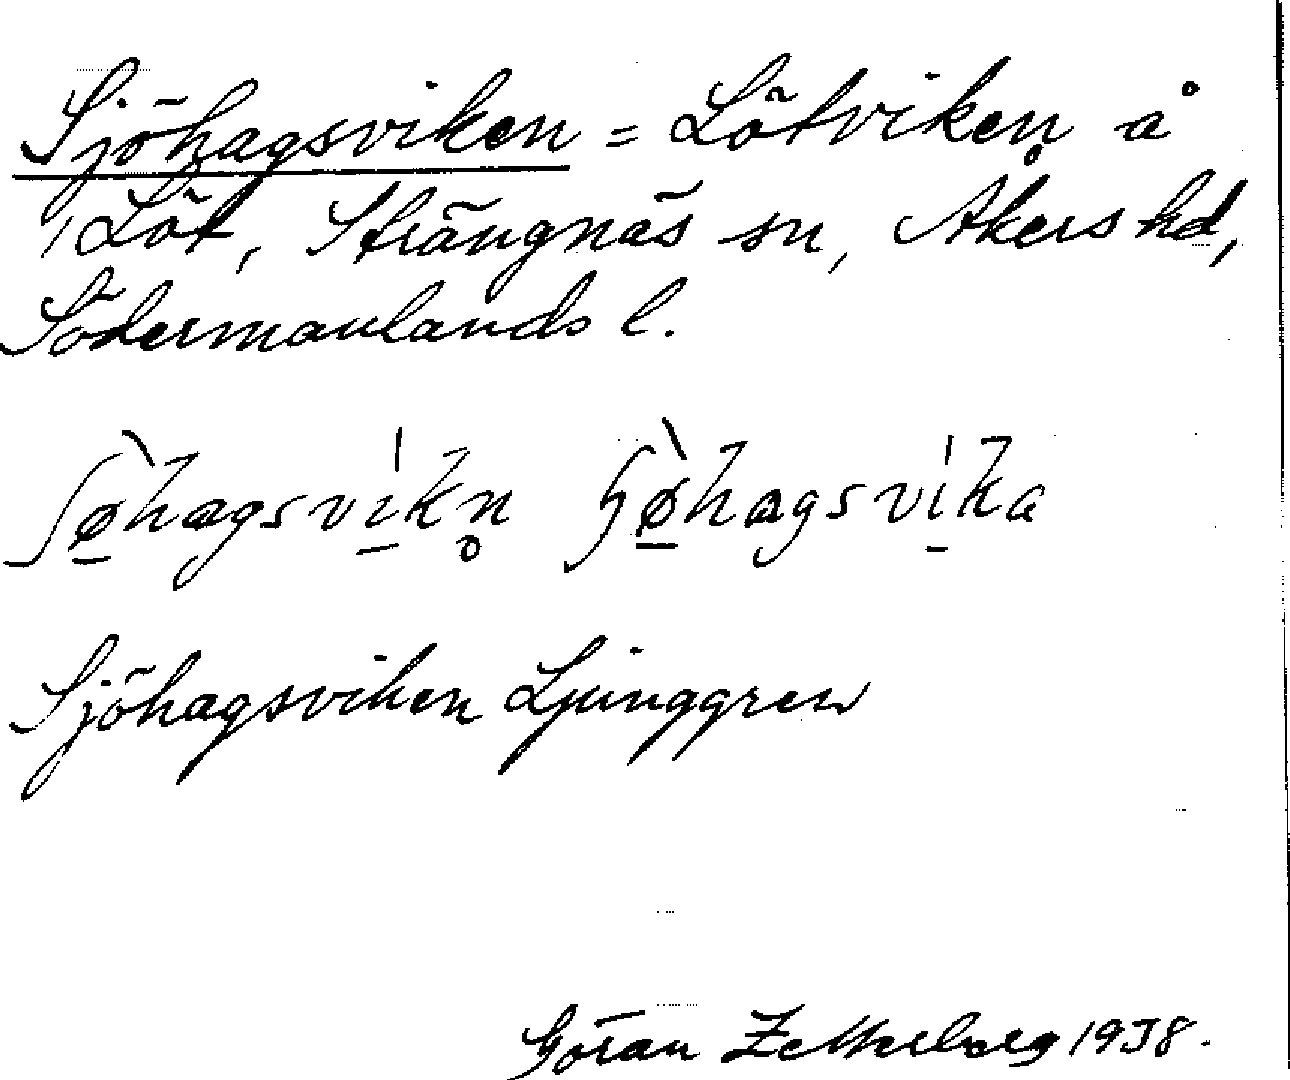 Sjöhagsviken = Lötviken å
1 Löt, Strängnäs sn, Åkers hd,
Södermanlands l.
ʃø̱̀hagsvi̱̍kn̥ ʃø̱̀hagsvi̱̍ka
Sjöhagsviken Ljunggren
Göran Zetterberg 1938.